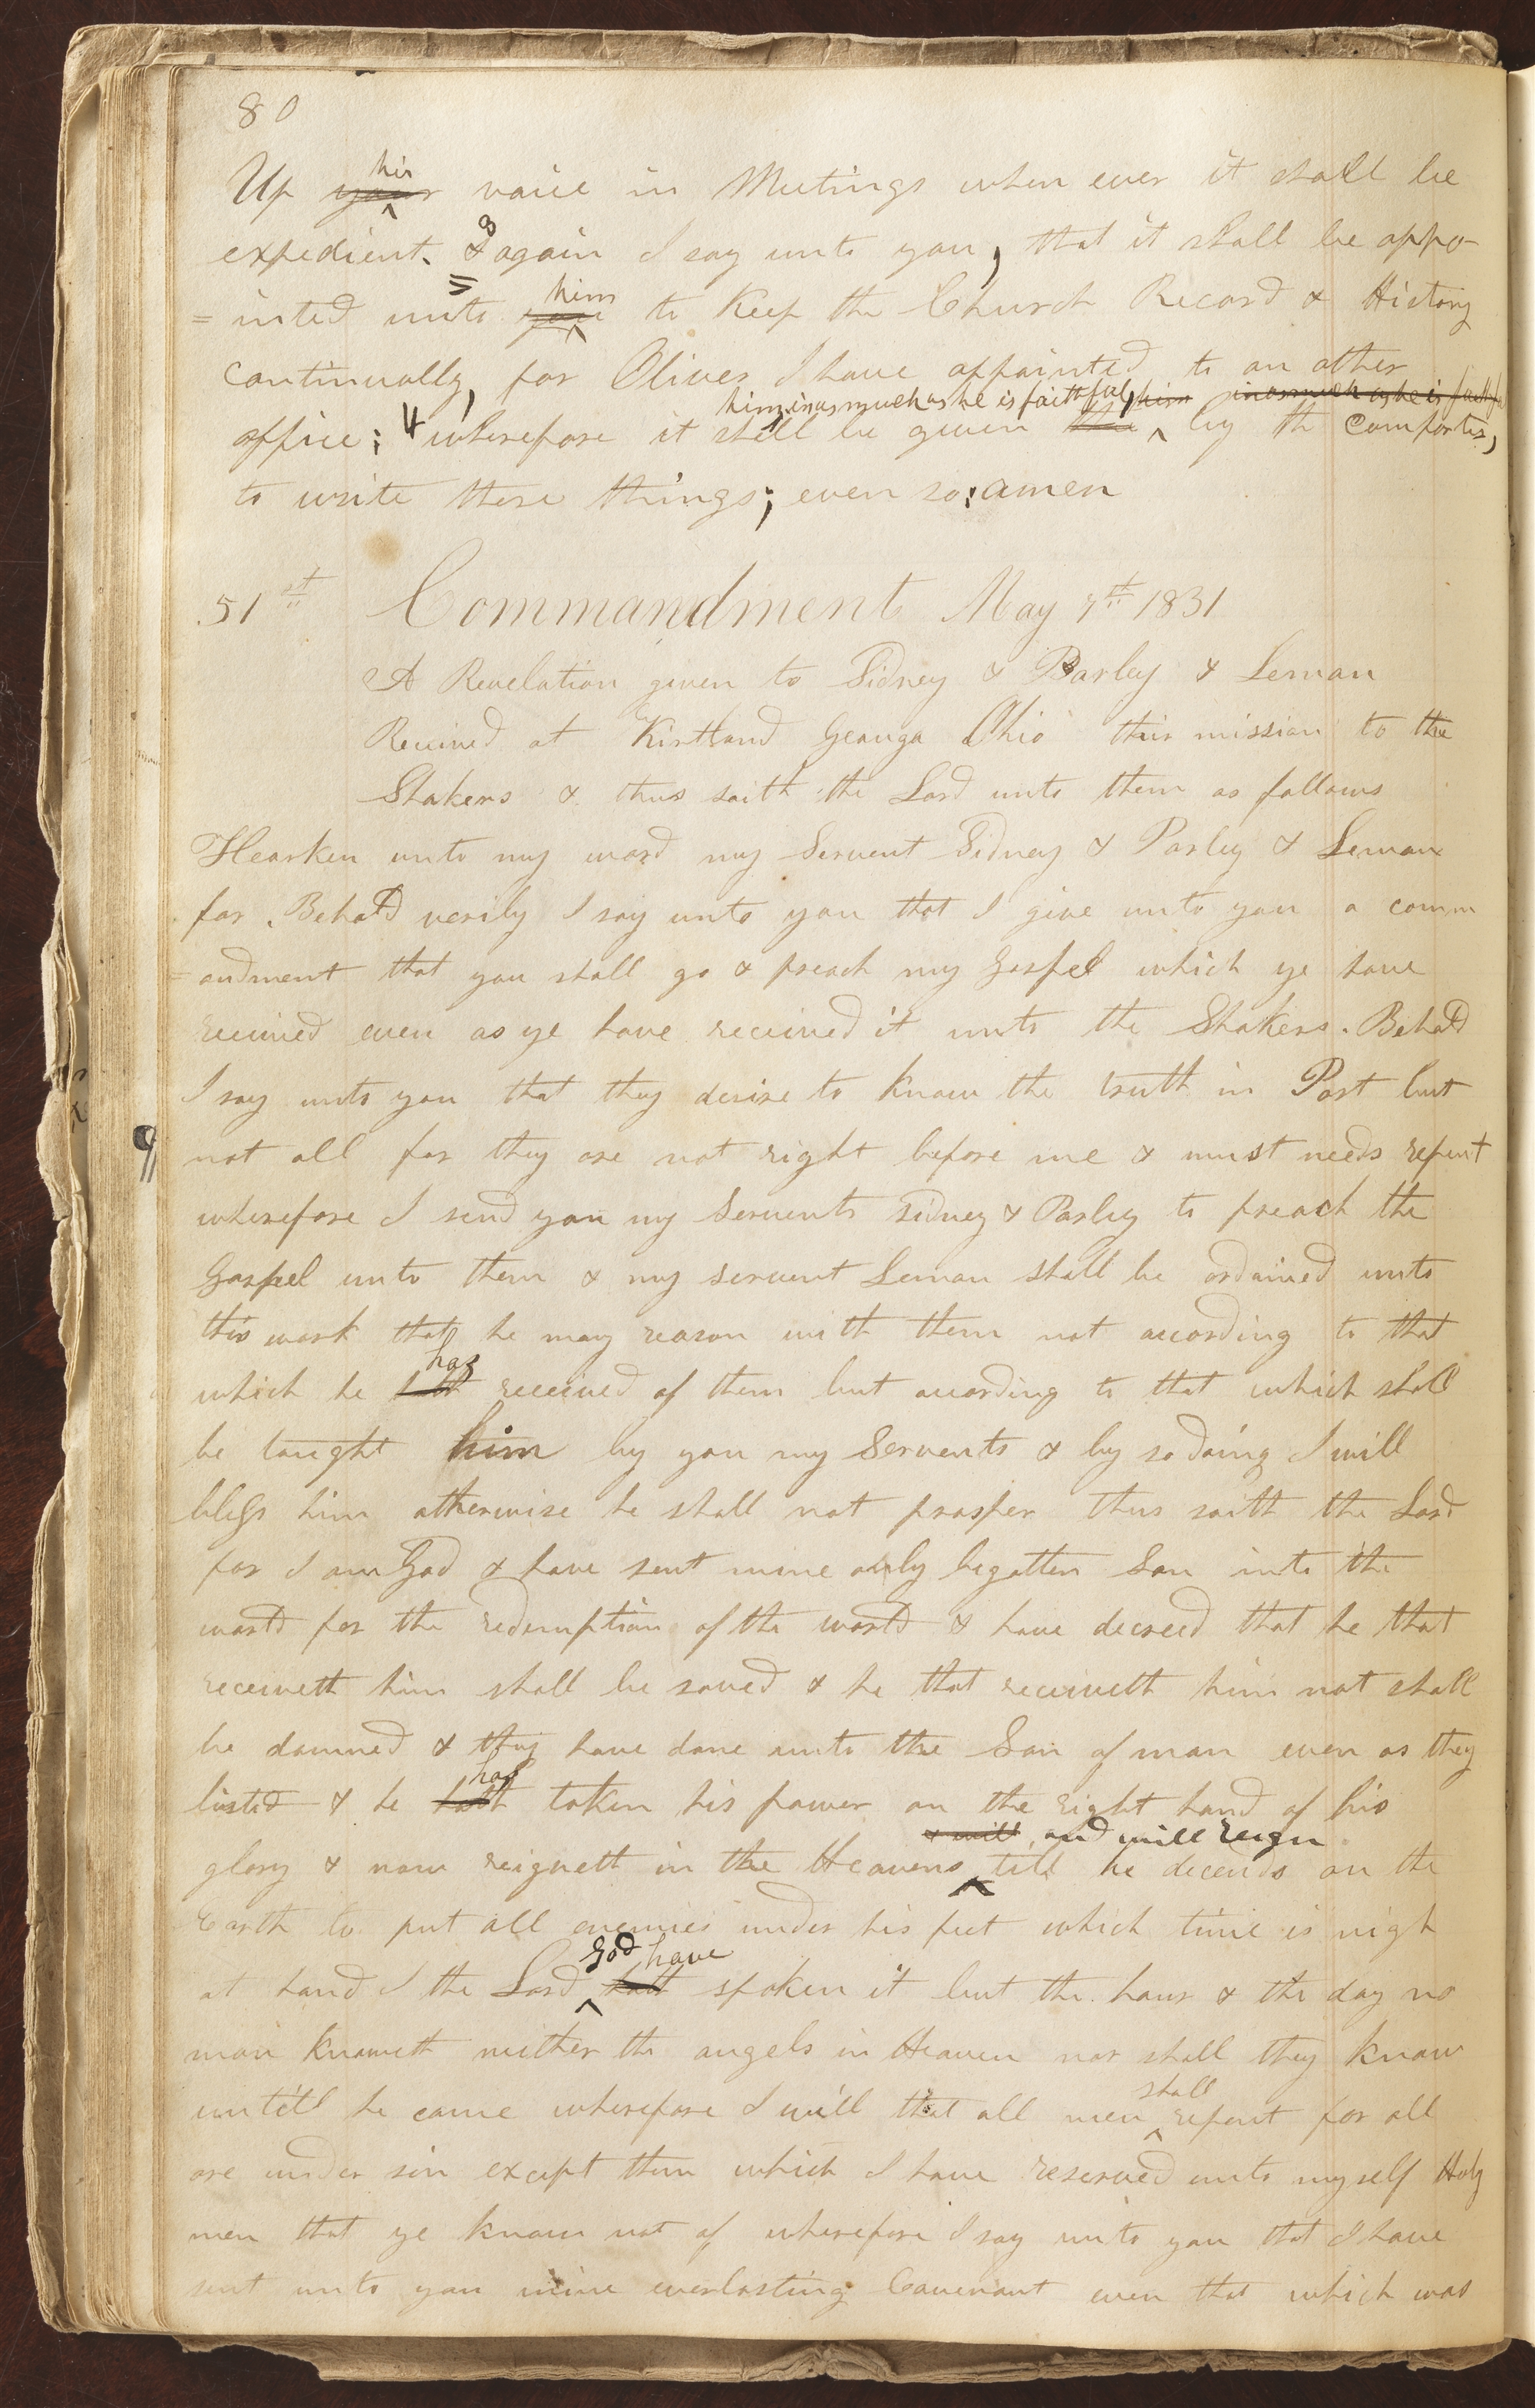 80
his
Up your voice in Meetings when ever it shall be
3
expedient. & again I say unto you, that it shall be appo-
him
=inted unto you to Keep the Church Record & History
continually, for Oliver I have appointed to an other
him, inasmuch as he is faithful, him inasmuch as he is faithful
office; 4 wherefore it shall be given thee by the comforter,
to write these things; even so; amen
51st Commandment May 7th 1831
A Revelation given to Sidney & Parley & Leman
Received at Kirtland Geauga Ohio their mission to the
Shakers & thus saith the Lord unto them as follows
Hearken unto my word my Servent Sidney & Parley & Leman
for Behold verily I say unto you that I give unto you a comm
=andment that you shall go & preach my Gospel which ye have
received even as ye have received it unto the Shakers. Behold
I say unto you that they desire to know the truth in Part but
¶ not all for they are not right before me & must needs repent
wherefore I send you my Servents Sidney & Parley to preach the
Gospel unto them & my servent Leman shall be ordained unto
this work that he may reason with them not acording to that
has
which he hath received of them but acording to that which shall
be taught him by you my Servents & by so doing I will
bless him otherwise he shall not prosper thus saith the Lord
for I am God & have sent mine only begotten Son into the
world for the redemption of the world & have decreed that he that
receiveth him shall be saved & he that receiveth him not shall
be damned & they have done unto the Son of man even as they
has
listed & he hath taken his power on the right hand of his
& will and will reign
glory & now reigneth in the Heavens till he decends on the
Earth to put all enemies under his feet which time is nigh
God have
at hand I the Lord hath spoken it but the hour & the day no
man knoweth neither the angels in Heaven nor shall they know
shall
untill he come wherefore I will that all men repent for all
are under sin except them which I have reserved unto myself Holy
men that ye know not of wherefore I say unto you that I have
sent unto you mine everlasting Covenant even that which was